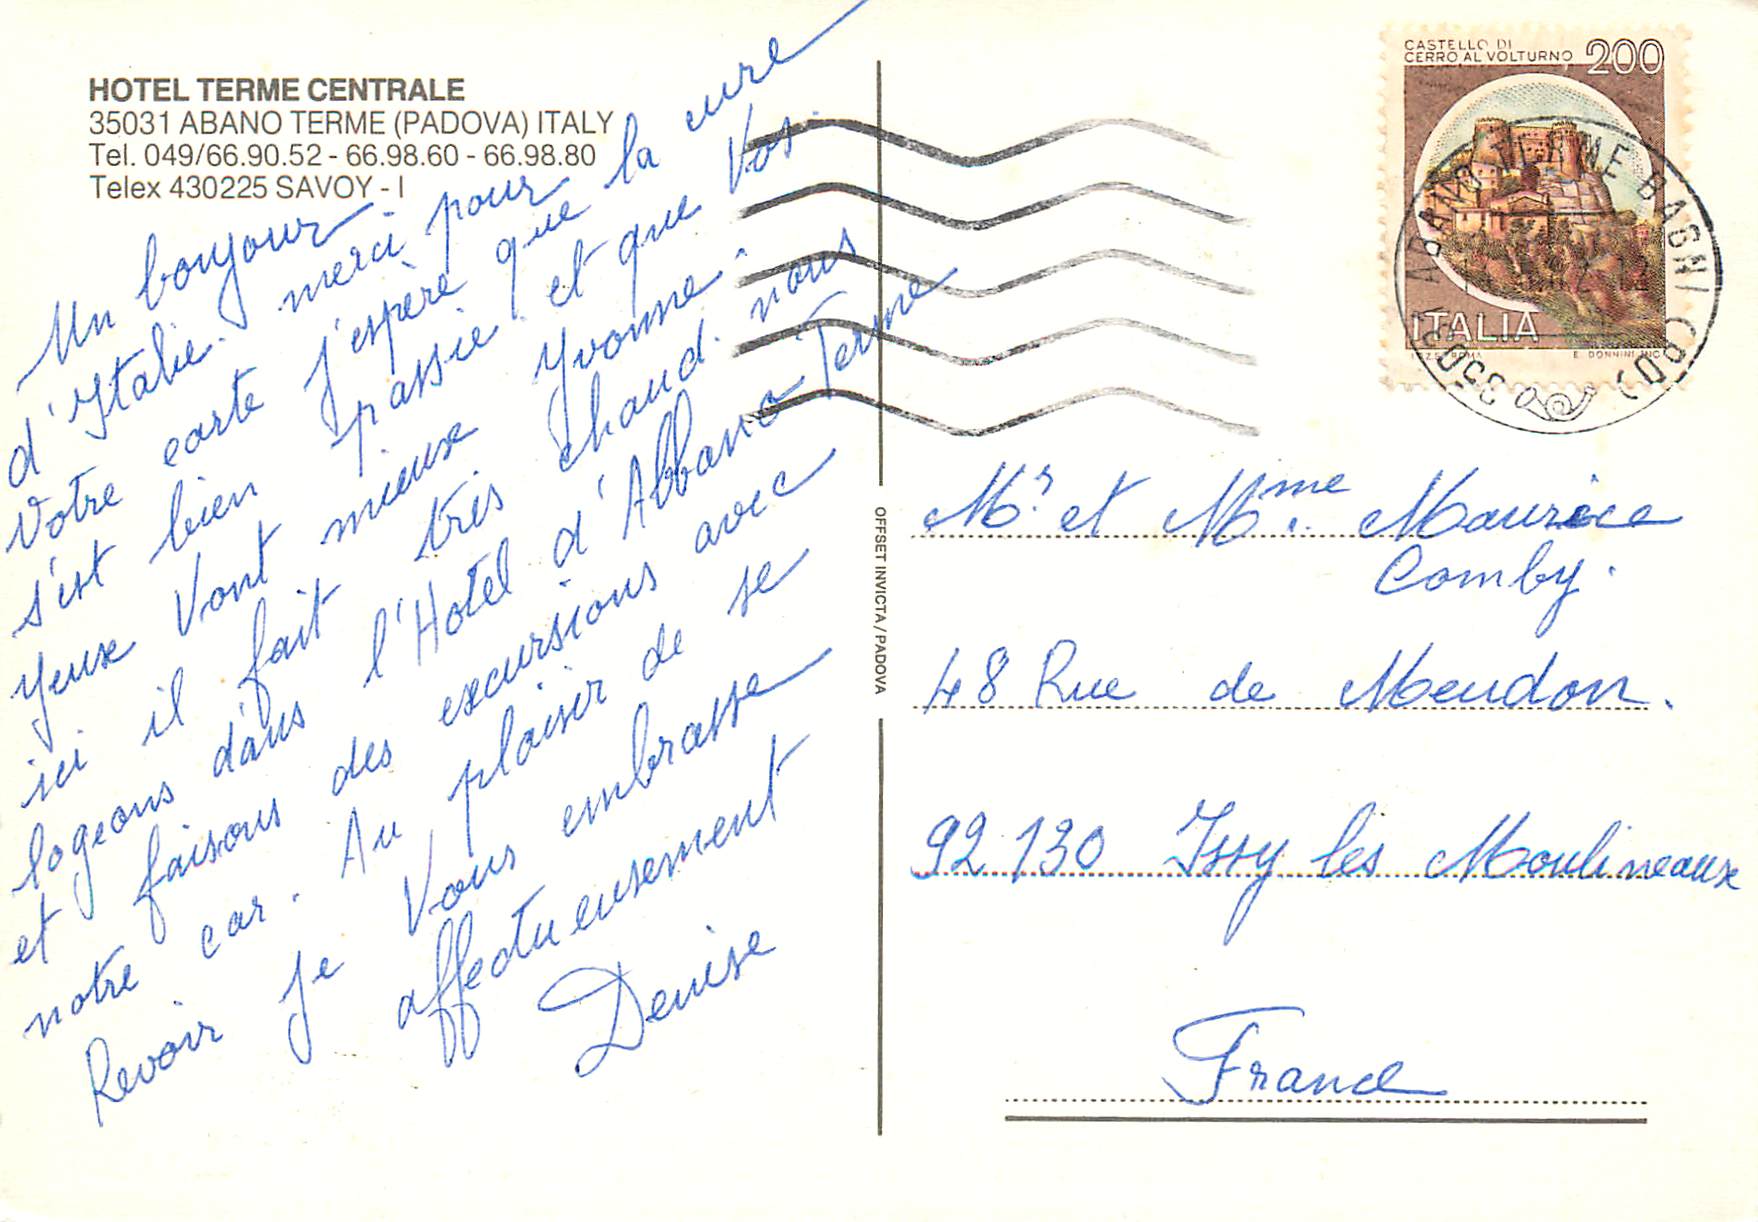 HOTEL TERME CENTRALE
35031 ABANO TERME (PADOVA) ITALY
Tel. 049/66.90.52 - 66.98.60 - 66.98.80
Telex 430225 SAVOY - I
Un bonjour
d'Italie. merci pour
votre carte j'espère que la cure
s'est bien passie et que Vos
yeux Vont mieux Yvonne.
ici il fait très chaud. nous
logeons dans l'Hotel d'Abbano Terme
et faisons des excursions avec
notre car. Au plaisir de se
Revoir je Vous embrasse
affectueusement
Denise
OFFSET INVICTA / PADOVA
CASTELLO DI
CERRO AL VOLTURNO 200
ITALIA
I.P.Z.S. ROMA E. DONNINI INC.
35031 ABANO TERME BAGNI (PD)
Mr. et Mme. Maurice
Comby.
48 Rue de Meudon.
92 130 Issy les Moulineaux
France